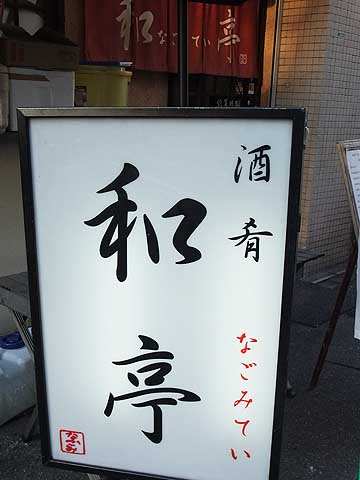 和なごてい亭
酒肴
なごみてい
和亭
なごみ